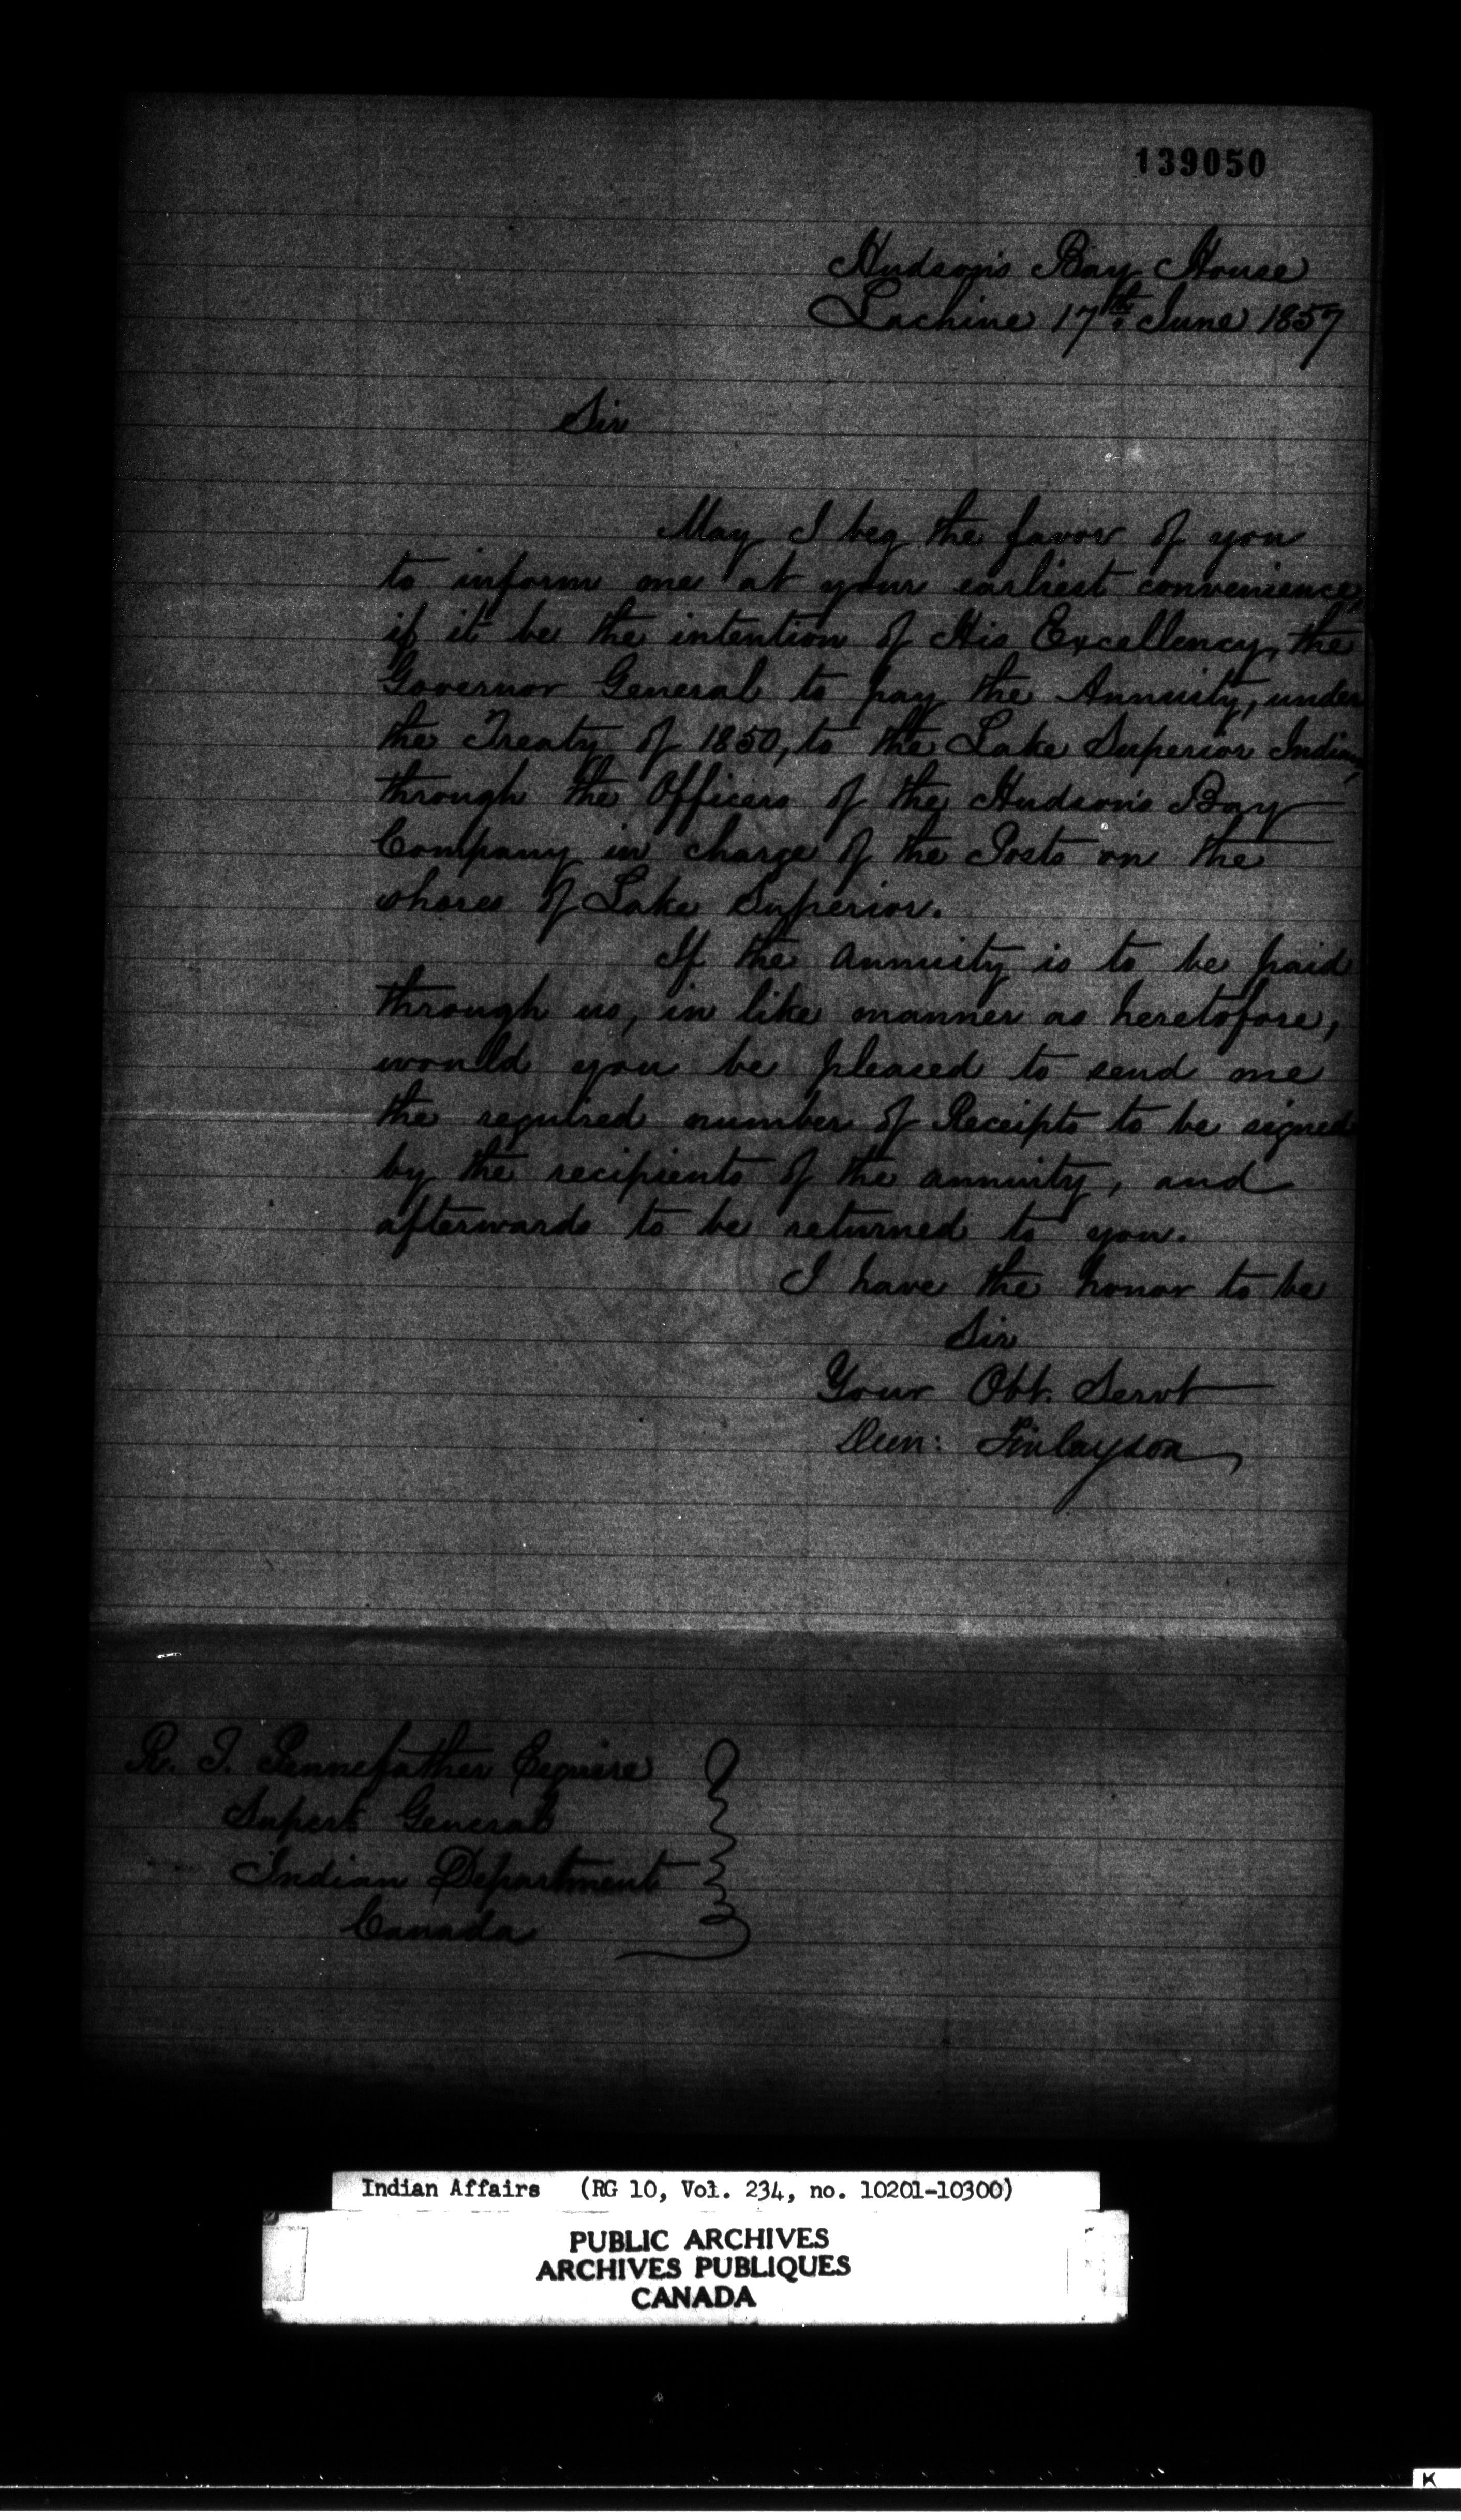 139050
Hudson's Bay House
Lachine 17th June 1857
Sir
May I beg the favor of you
to inform me at your earliest convenience,
if it be the intention of His Excellency, the
Governor General to pay the Annuity, under
the Treaty of 1850, to the Lake Superior Indians,
through the Officers of the Hudson's Bay
Company in charge of the Posts on the
shores of Lake Superior.
If the annuity is to be paid
through us, in like manner as heretofore,
would you be pleased to send me
the required number of Receipts to be signed
by the recipients of the annuity, and
afterwards to be returned to you.
I have the honor to be
Sir
Your Obt. Servt
Dun: Finlayson
R. T. Pennefather Esquire
Supert General
Indian Department
Canada
Indian Affairs (RG 10, Vol. 234, no. 10201-10300)
PUBLIC ARCHIVES
ARCHIVES PUBLIQUES
CANADA
K